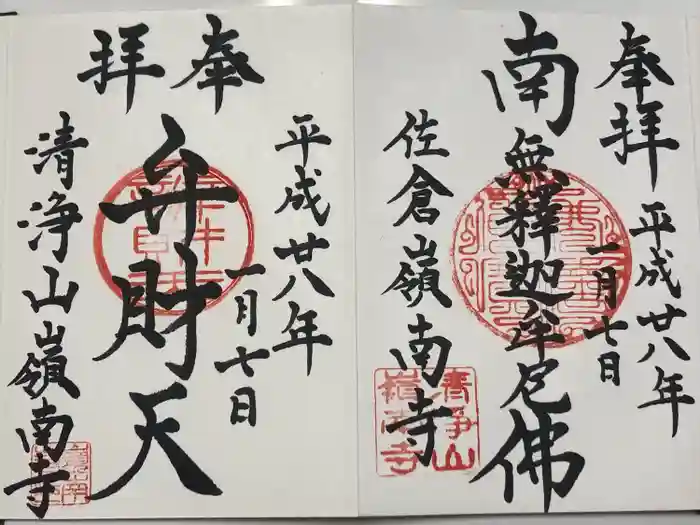 奉拝
平成廿八年
一月七日
南無釋迦牟尼佛
佐倉嶺南寺
清浄山
嶺南寺
奉拝
平成廿八年
一月七日
弁財天
清浄山嶺南寺